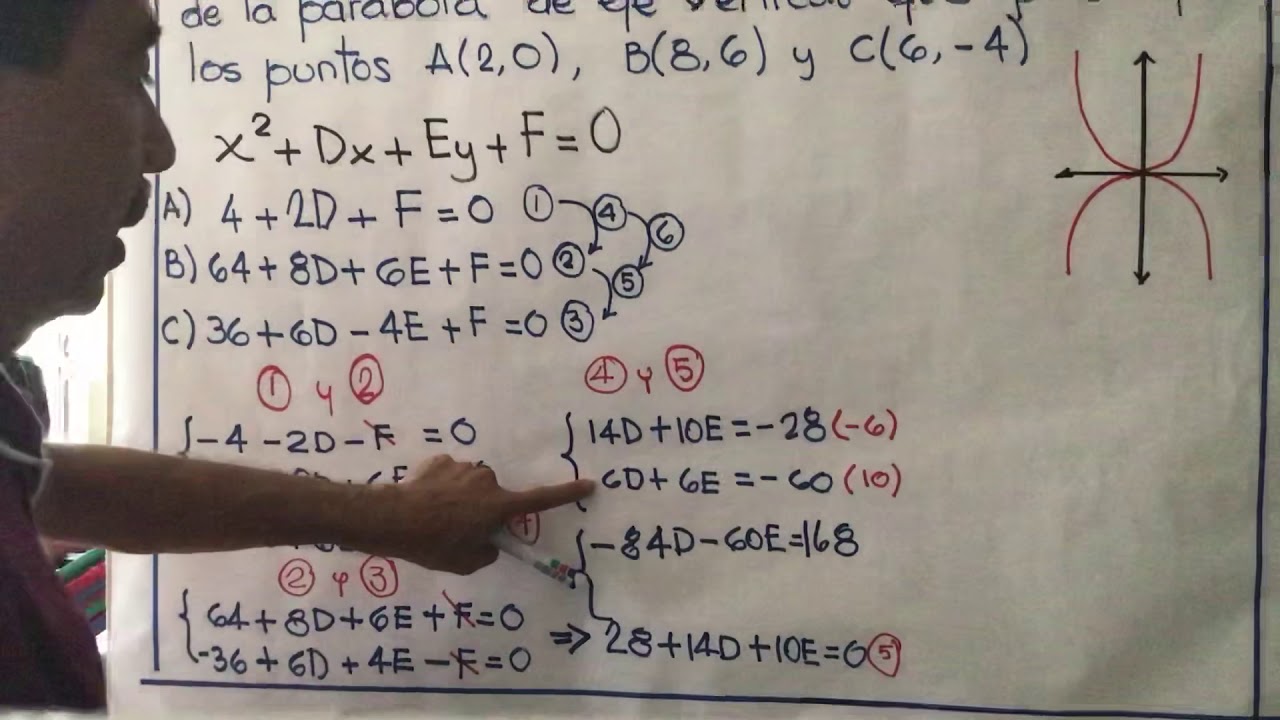 de la parábola de eje
los puntos A(2,0), B(8,6) y C(6,-4)
x²+Dx+Ey+F=0
A) 4+2D+F=0 ① ④ ⑥
B) 64+8D+6E+F=0 ② ⑤
C) 36+6D-4E+F=0 ③
① y ②
-4-2D-F=0
② y ③
64+8D+6E+F=0
-36+6D+4E-F=0
⇒ 28+14D+10E=0 ⑤
④ y ⑤
14D+10E=-28(-6)
6D+6E=-60(10)
-84D-60E=168